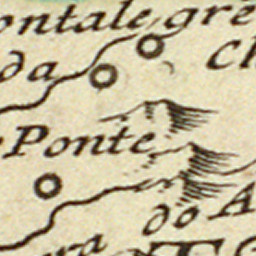 ontale gre
da Cl
Ponte
do A
ra